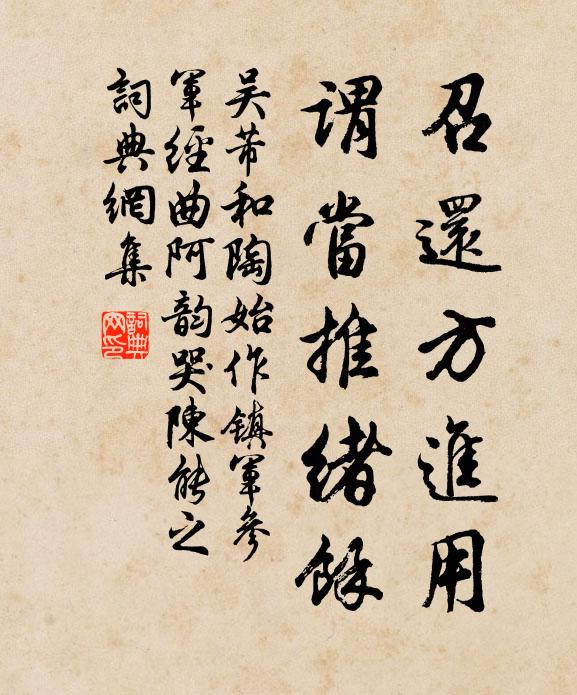 召還方進用
謂當推緒餘
吴芾和陶始作鎮軍參
軍經曲阿韵哭陳能之
詞典網集
詞典网印